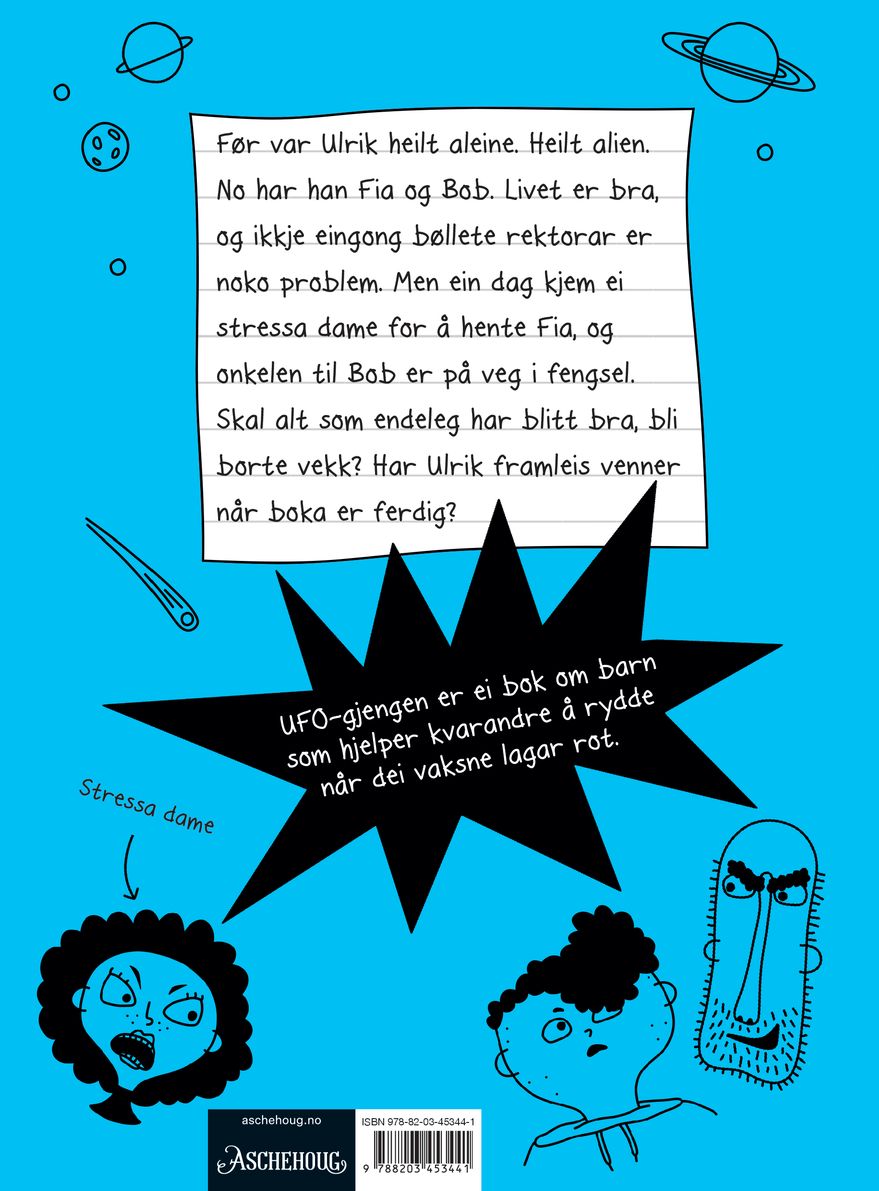 Før var Ulrik heilt aleine. Heilt alien.
No har han Fia og Bob. Livet er bra,
og ikkje eingong bøllete rektorar er
noko problem. Men ein dag kjem ei
stressa dame for å hente Fia, og
onkelen til Bob er på veg i fengsel.
Skal alt som endeleg har blitt bra, bli
borte vekk? Har Ulrik framleis venner
når boka er ferdig?
UFO-gjengen er ei bok om barn
som hjelper kvarandre å rydde
når dei vaksne lagar rot.
Stressa dame
aschehoug.no
ASCHEHOUG
ISBN 978-82-03-45344-1
9 788203 453441